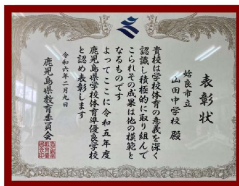 表彰状
姶良市立
山田中学校 殿
貴校は学校体育の意義を深く
認識し積極的に取り組んで
こられその成果は他の模範と
なるものです
よってここに令和五年度
鹿児島県学校体育準優良学校
と認め表彰します
令和六年二月九日
鹿児島県教育委員会